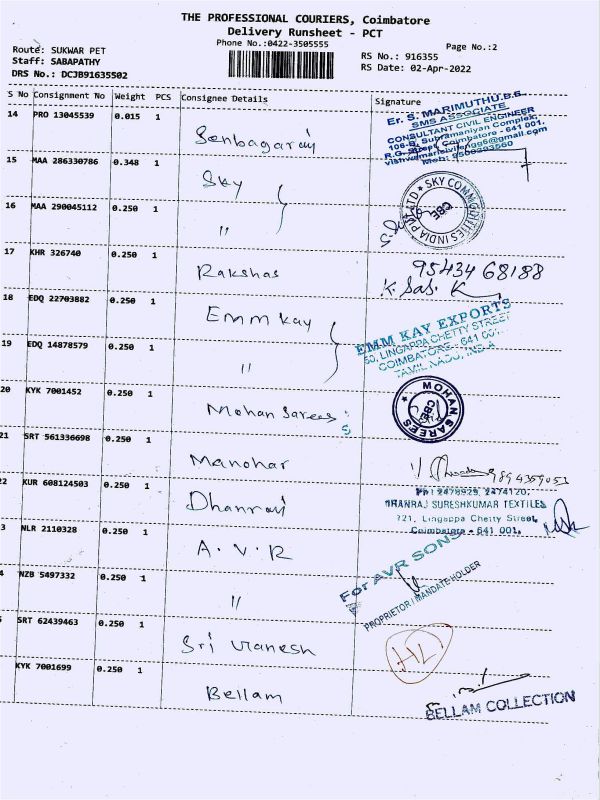 THE PROFESSIONAL COURIERS, Coimbatore
Delivery Runsheet - PCT
Phone No.:0422-3505555
Page No.:2
Route: SUKWAR PET
Staff: SABAPATHY
DRS No.: DCJB91635502
RS No.: 916355
RS Date: 02-Apr-2022
S No Consignment No Weight PCS Consignee Details Signature
14 PRO 13045539 0.015 1 Senbagaraj
Er. S. MARIMUTHU.B.E.
SMS ASSOCIATE
CONSULTANT CIVIL ENGINEER
106-B, Subramaniyan Complex,
Coimbatore - 641 001.
15 MAA 286330786 0.348 1 Sky
SKY COMMODITIES INDIA PVT LTD
CBE
16 MAA 290045112 0.250 1 "
17 KHR 326740 0.250 1 Rakshas
95434 68188
K. Sas. K
18 EDQ 22703882 0.250 1 Emm Kay
EMM KAY EXPORTS
50, LINGAPPA CHETTY STREET
COIMBATORE - 641 001.
TAMIL NADU, INDIA
19 EDQ 14878579 0.250 1 "
20 KYK 7001452 0.250 1 Mohan Sarees
MOHAN SAREES
CBE
21 SRT 561336698 0.250 1 Manohar
22 KUR 608124503 0.250 1 Dhanraj
Ph : 2478929, 2474120,
DHANRAJ SURESHKUMAR TEXTILES
721, Lingappa Chetty Street,
Coimbatore - 641 001.
3 NLR 2110328 0.250 1 A.V.R
For AVR SONS
4 NZB 5497332 0.250 1 "
PROPRIETOR / MANDATE HOLDER
SRT 62439463 0.250 1 Sri Vanesh
KYK 7001699 0.250 1 Bellam
BELLAM COLLECTION